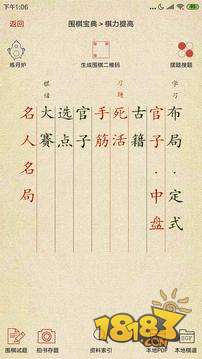 下午1:06
返回
围棋宝典 > 棋力提高
炼丹炉
生成围棋二维码
摆题搜题
学习
布局·定式
官子·中盘
古籍
习题
死活
手筋
官子
选点
大赛
名人名局
围棋试题
拍书存题
资料索引
本地PDF
本地棋谱
18183
.com